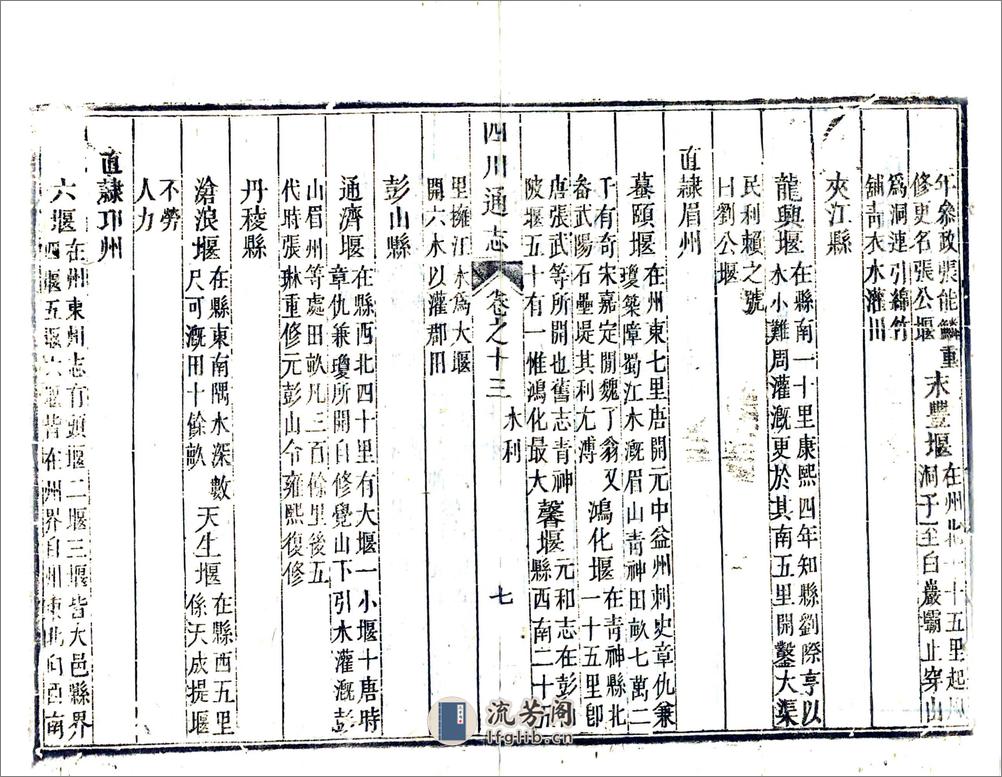 年參政張能鱗重
修更名張公堰
豐堰
在州北一十五里起
洞子至白巖壩止穿山
爲洞連引綿竹
鋪青衣水灌田
夾江縣
龍興堰
在縣南一十里康熙四年知縣劉際亨以
水小難周灌溉更於其南五里開鑿大渠
民利賴之號
曰劉公堰
直隸眉州
蟇頤堰
在州東七里唐開元中益州刺史章仇兼
瓊築障蜀江水溉眉山青神田畝七萬二
千有奇宋嘉定間魏了翁又
畚武陽石壘堤其利尤溥
鴻化堰
在青神縣北
一十五里卽
唐張武等所開也舊志青神
陂堰五十有一惟鴻化最大
馨堰
元和志在彭山
縣西南二十五
里擁江水爲大堰
開六水以灌郡田
四川通志 卷之十三 水利 七
彭山縣
通濟堰
在縣西北四十里有大堰一小堰十唐時
章仇兼瓊所開自修覺山下引水灌溉彭
山眉州等處田畝凡三百餘里後五
代時張琳重修元彭山令雍熙復修
丹稜縣
滄浪堰
在縣東南隅水深數
尺可溉田十餘畝
天生堰
在縣西五里
係天成提堰
不勞
人力
直隸邛州
六堰
在州東州志有頭堰二堰三堰皆大邑縣界
四堰五堰六堰皆在州界自州東北向西南
流芳阁
lfglib.cn